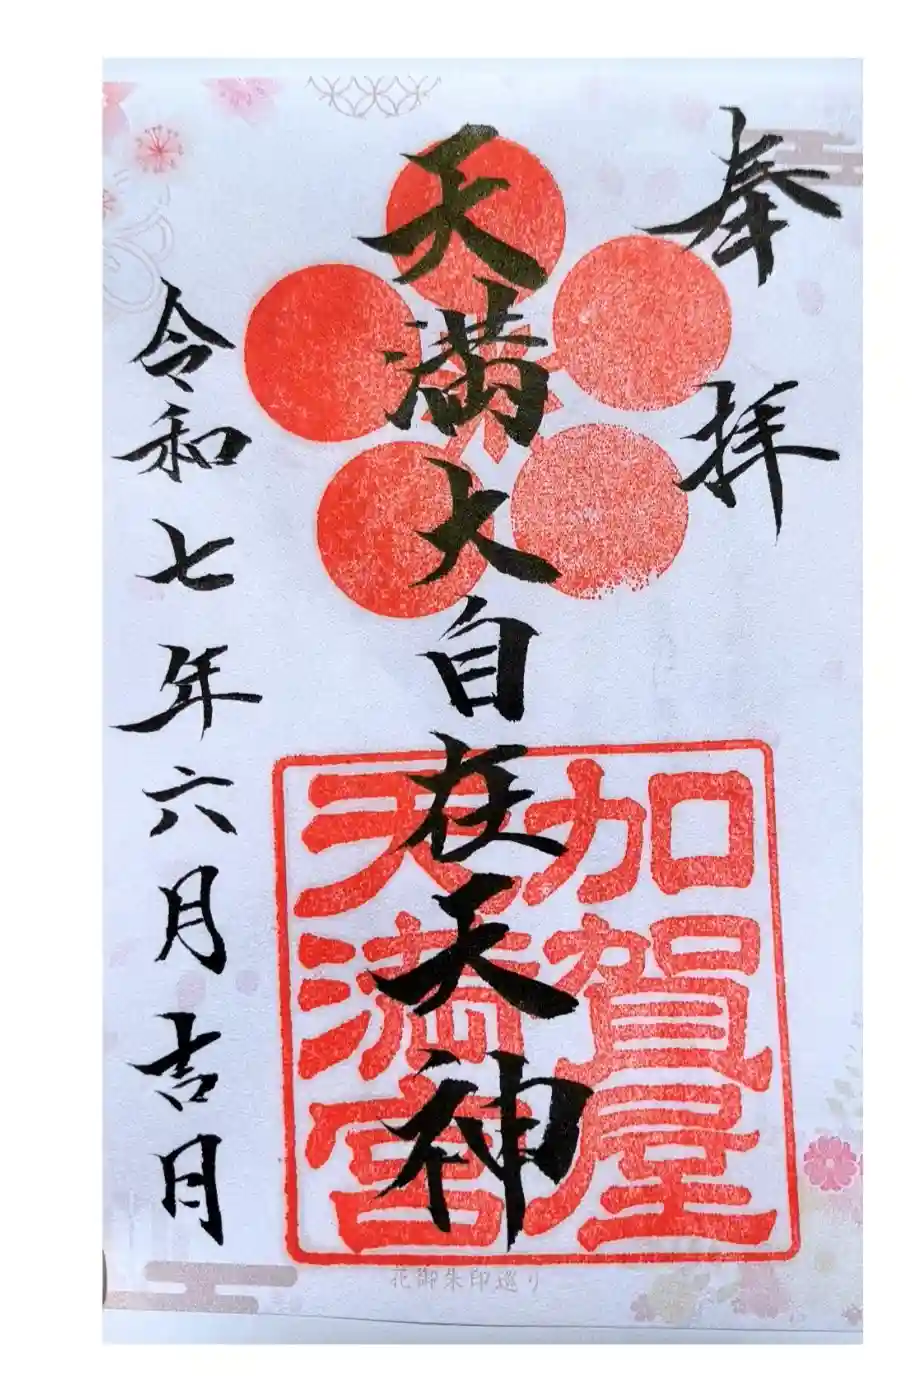 奉拝
天満大自在天神
加賀屋
天満宮
令和七年六月吉月
花御朱印巡り